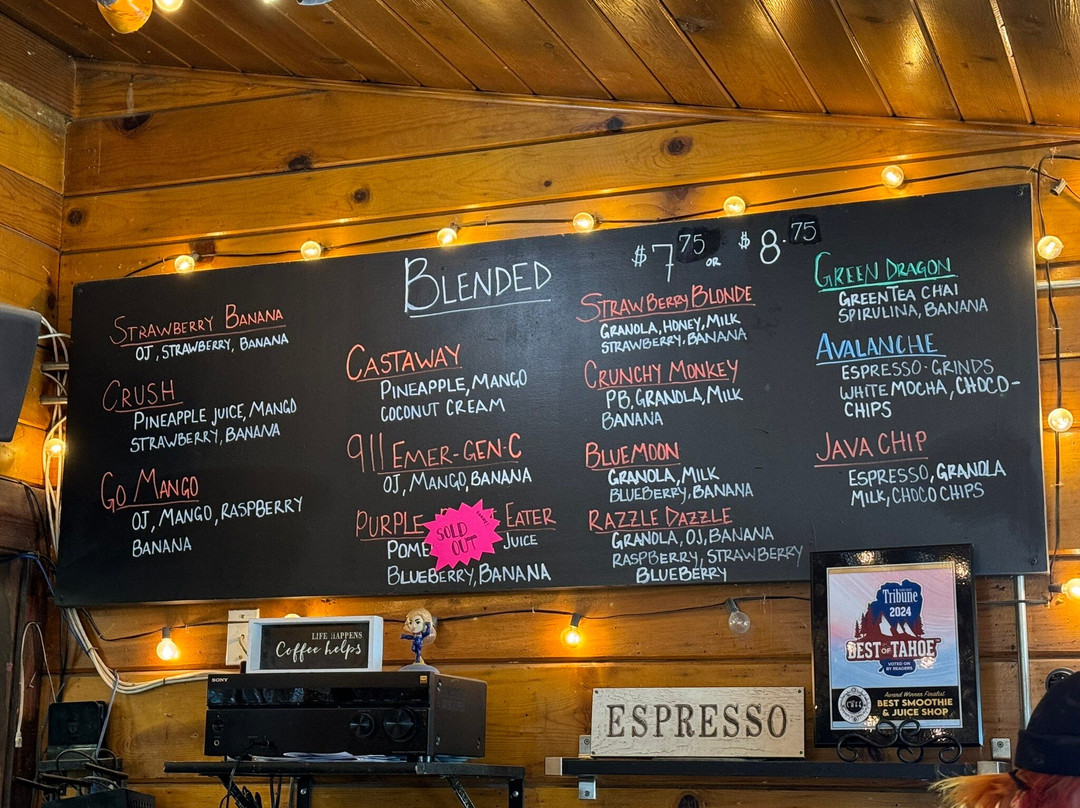 BLENDED
$7.75 OR $8.75
STRAWBERRY BANANA
OJ, STRAWBERRY, BANANA
CRUSH
PINEAPPLE JUICE, MANGO
STRAWBERRY, BANANA
GO MANGO
OJ, MANGO, RASPBERRY
BANANA
CASTAWAY
PINEAPPLE, MANGO
COCONUT CREAM
911 EMER-GEN-C
OJ, MANGO, BANANA
PURPLE EATER
SOLD
OUT
JUICE
BLUEBERRY, BANANA
STRAWBERRY BLONDE
GRANOLA, HONEY, MILK
STRAWBERRY, BANANA
CRUNCHY MONKEY
PB, GRANOLA, MILK
BANANA
BLUEMOON
GRANOLA, MILK
BLUEBERRY, BANANA
RAZZLE DAZZLE
GRANOLA, OJ, BANANA
RASPBERRY, STRAWBERRY
BLUEBERRY
GREEN DRAGON
GREENTEA CHAI
SPIRULINA, BANANA
AVALANCHE
ESPRESSO-GRINDS
WHITE MOCHA, CHOCO-
CHIPS
JAVA CHIP
ESPRESSO, GRANOLA
MILK, CHOCO CHIPS
LIFE HAPPENS
Coffee helps
SONY
ESPRESSO
Tribune
2024
BEST OF TAHOE
VOTED ON
BY READERS
Award Winner Finalist
BEST SMOOTHIE
& JUICE SHOP